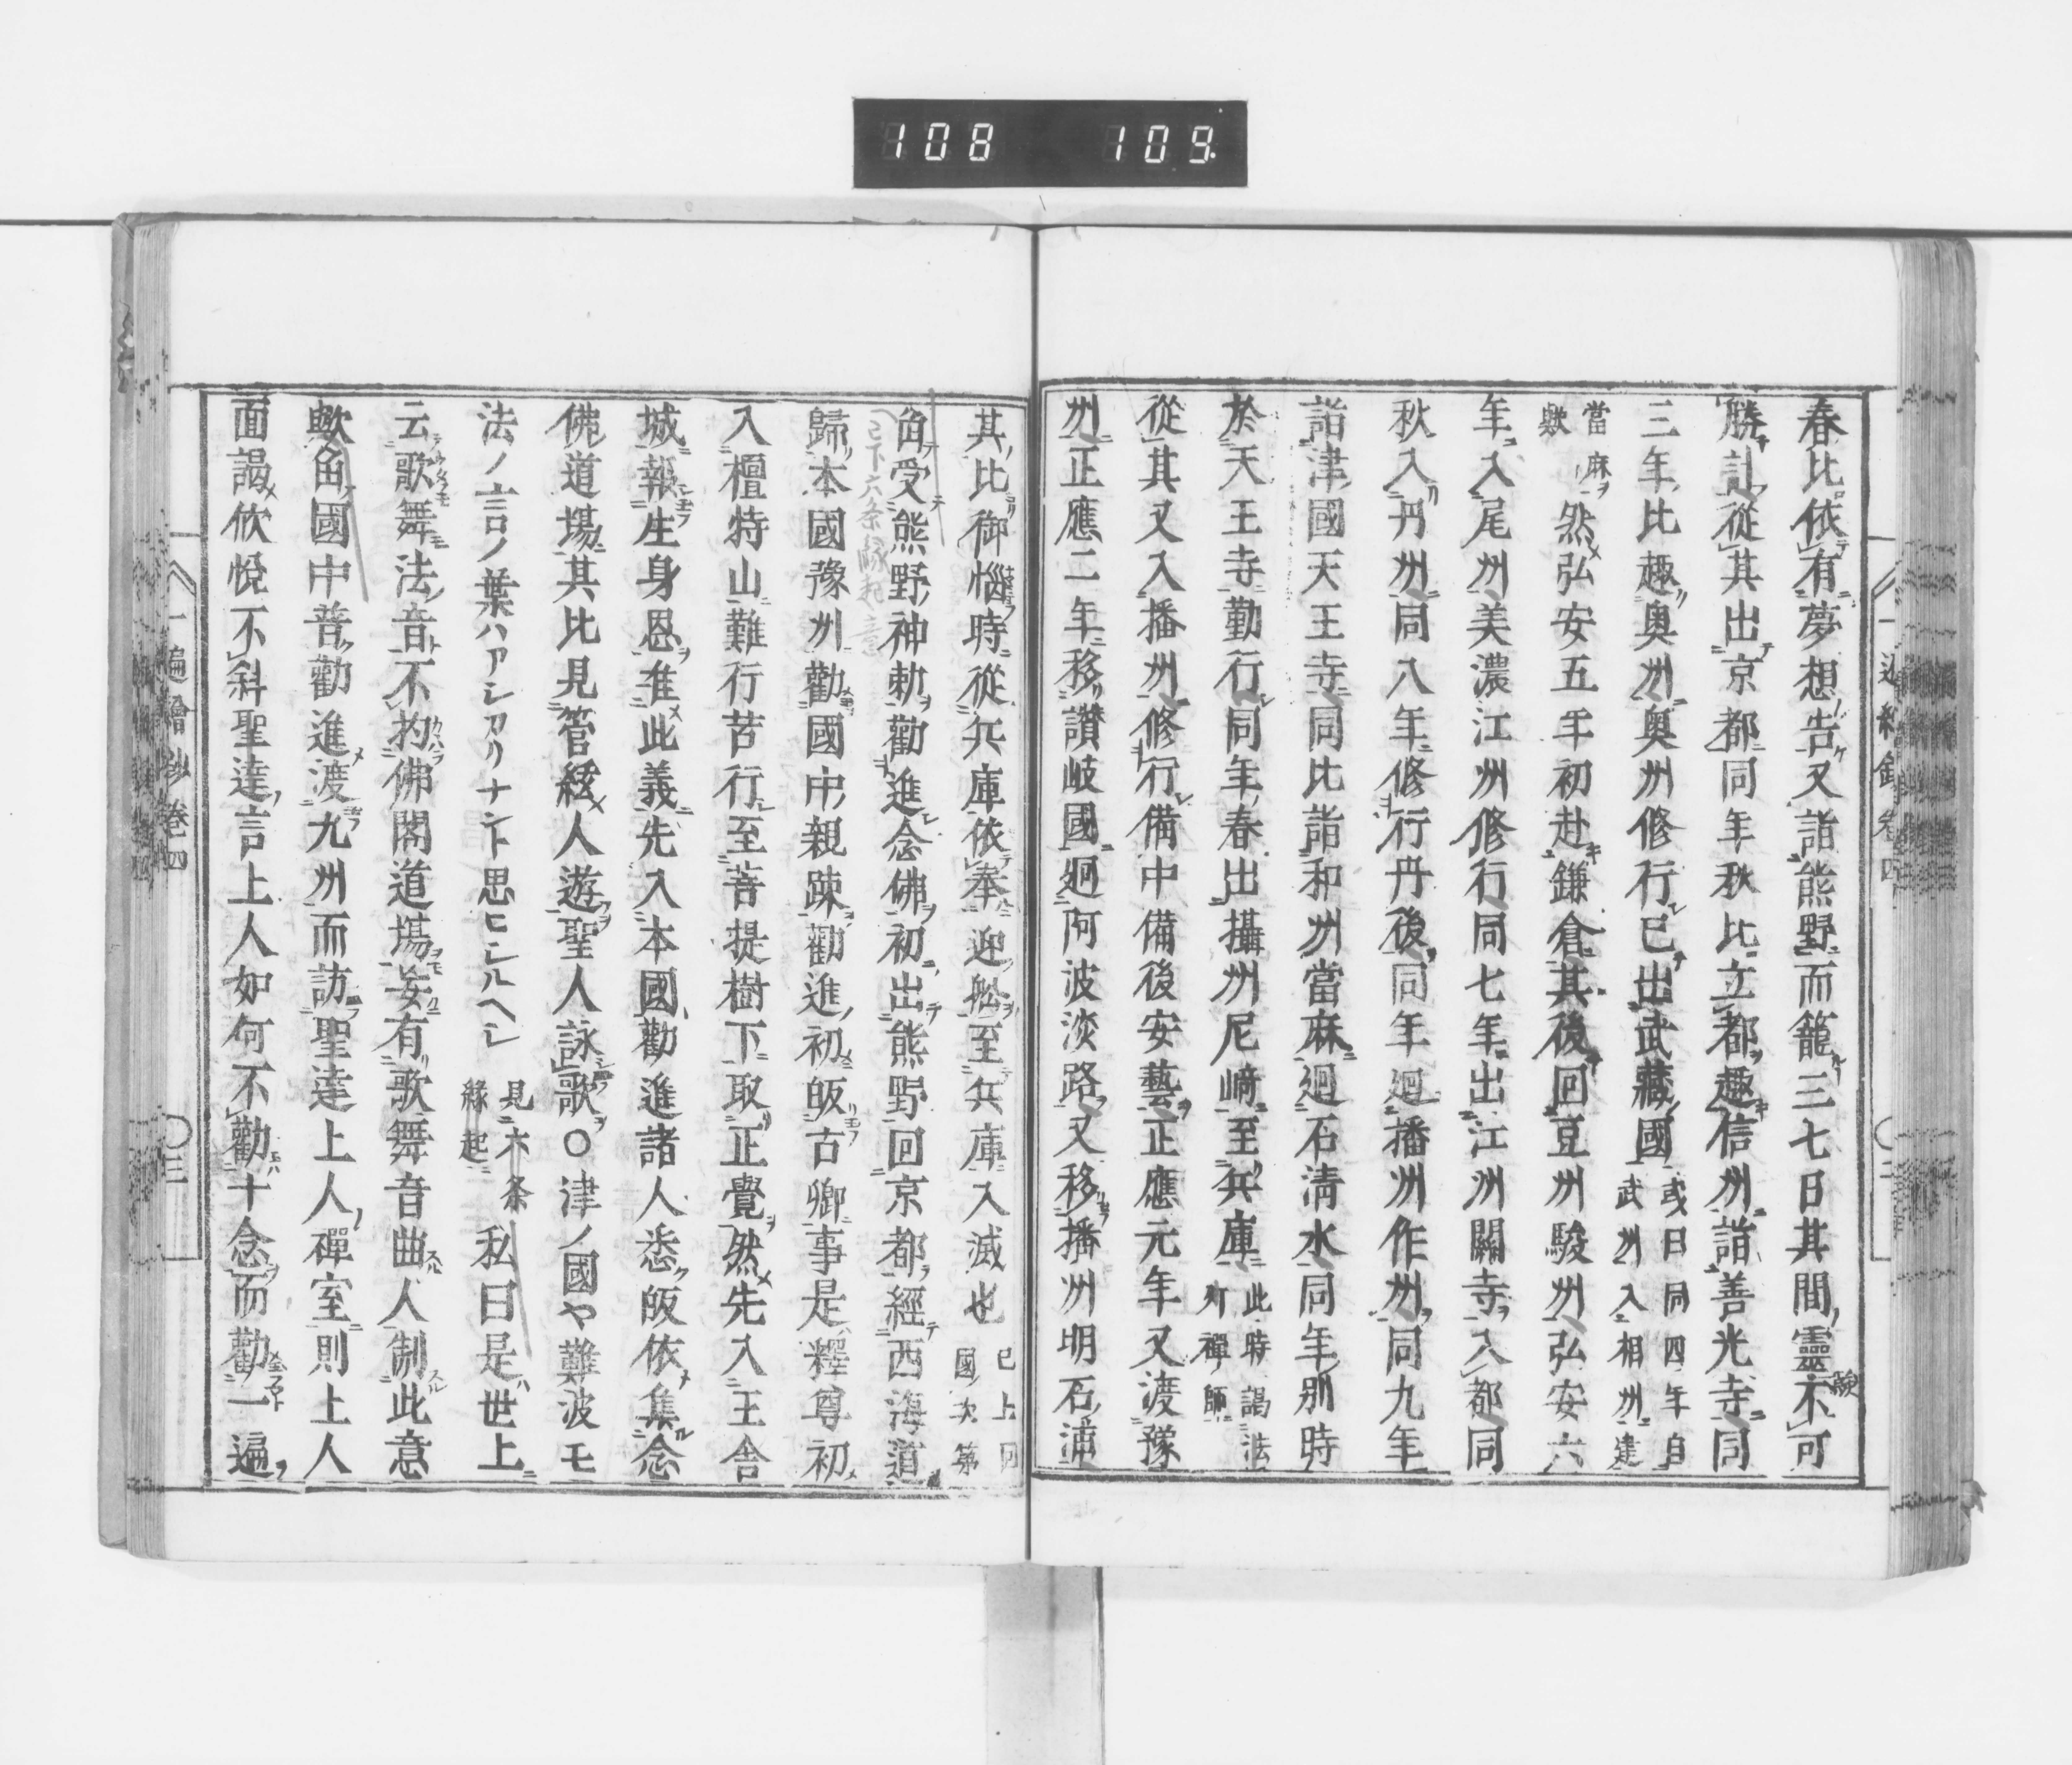 108 109
春比依有夢想告又詣熊野而籠三七日其間靈不可
勝計從其出京都同年秋比立都趣信州詣善光寺同
三年比趣奧州奧州修行已出武藏國或曰同四年自武州入相州達
當麻歟然弘安五年初赴鎌倉其後回豆州駿州弘安六
年入尾州美濃江州修行同七年出江洲關寺入都同
秋入丹州同八年修行丹後同年廻播洲作州同九年
詣津國天王寺同比詣和洲當麻廻石淸水同年別時
於天王寺勤行同年春出攝州尼崎至兵庫此時謁法灯禪師
從其又入播州修行備中備後安藝正應元年又渡豫
州正應二年移讃岐國廻阿波淡路又移播洲明石浦
其比御惱時從兵庫依奉迎舩至兵庫入滅也已上回國次第
角受熊野神勅勸進念佛初出熊野回京都經西海道
已下六条緣起意
歸本國豫州勸國中親疎勸進初皈古鄉事是釋尊初
入檀特山難行苦行至菩提樹下取正覺然先入王舍
城報生身恩准此義先入本國勸進諸人悉皈依集念
佛道場其比見管絃人遊聖人詠歌○津ノ國ヤ難波モ
法ノ言ノ葉ハアシカリナント思ヒシルヘシ見六条緣起私曰是世上
云歌舞法音不拘佛閣道場妄有歌舞音曲人制此意
歟角國中普勸進渡九州而訪聖達上人禪室則上人
面謁伙悅不斜聖達言上人如何不勸十念而勸一遍
一遍繪抄卷四 〇三